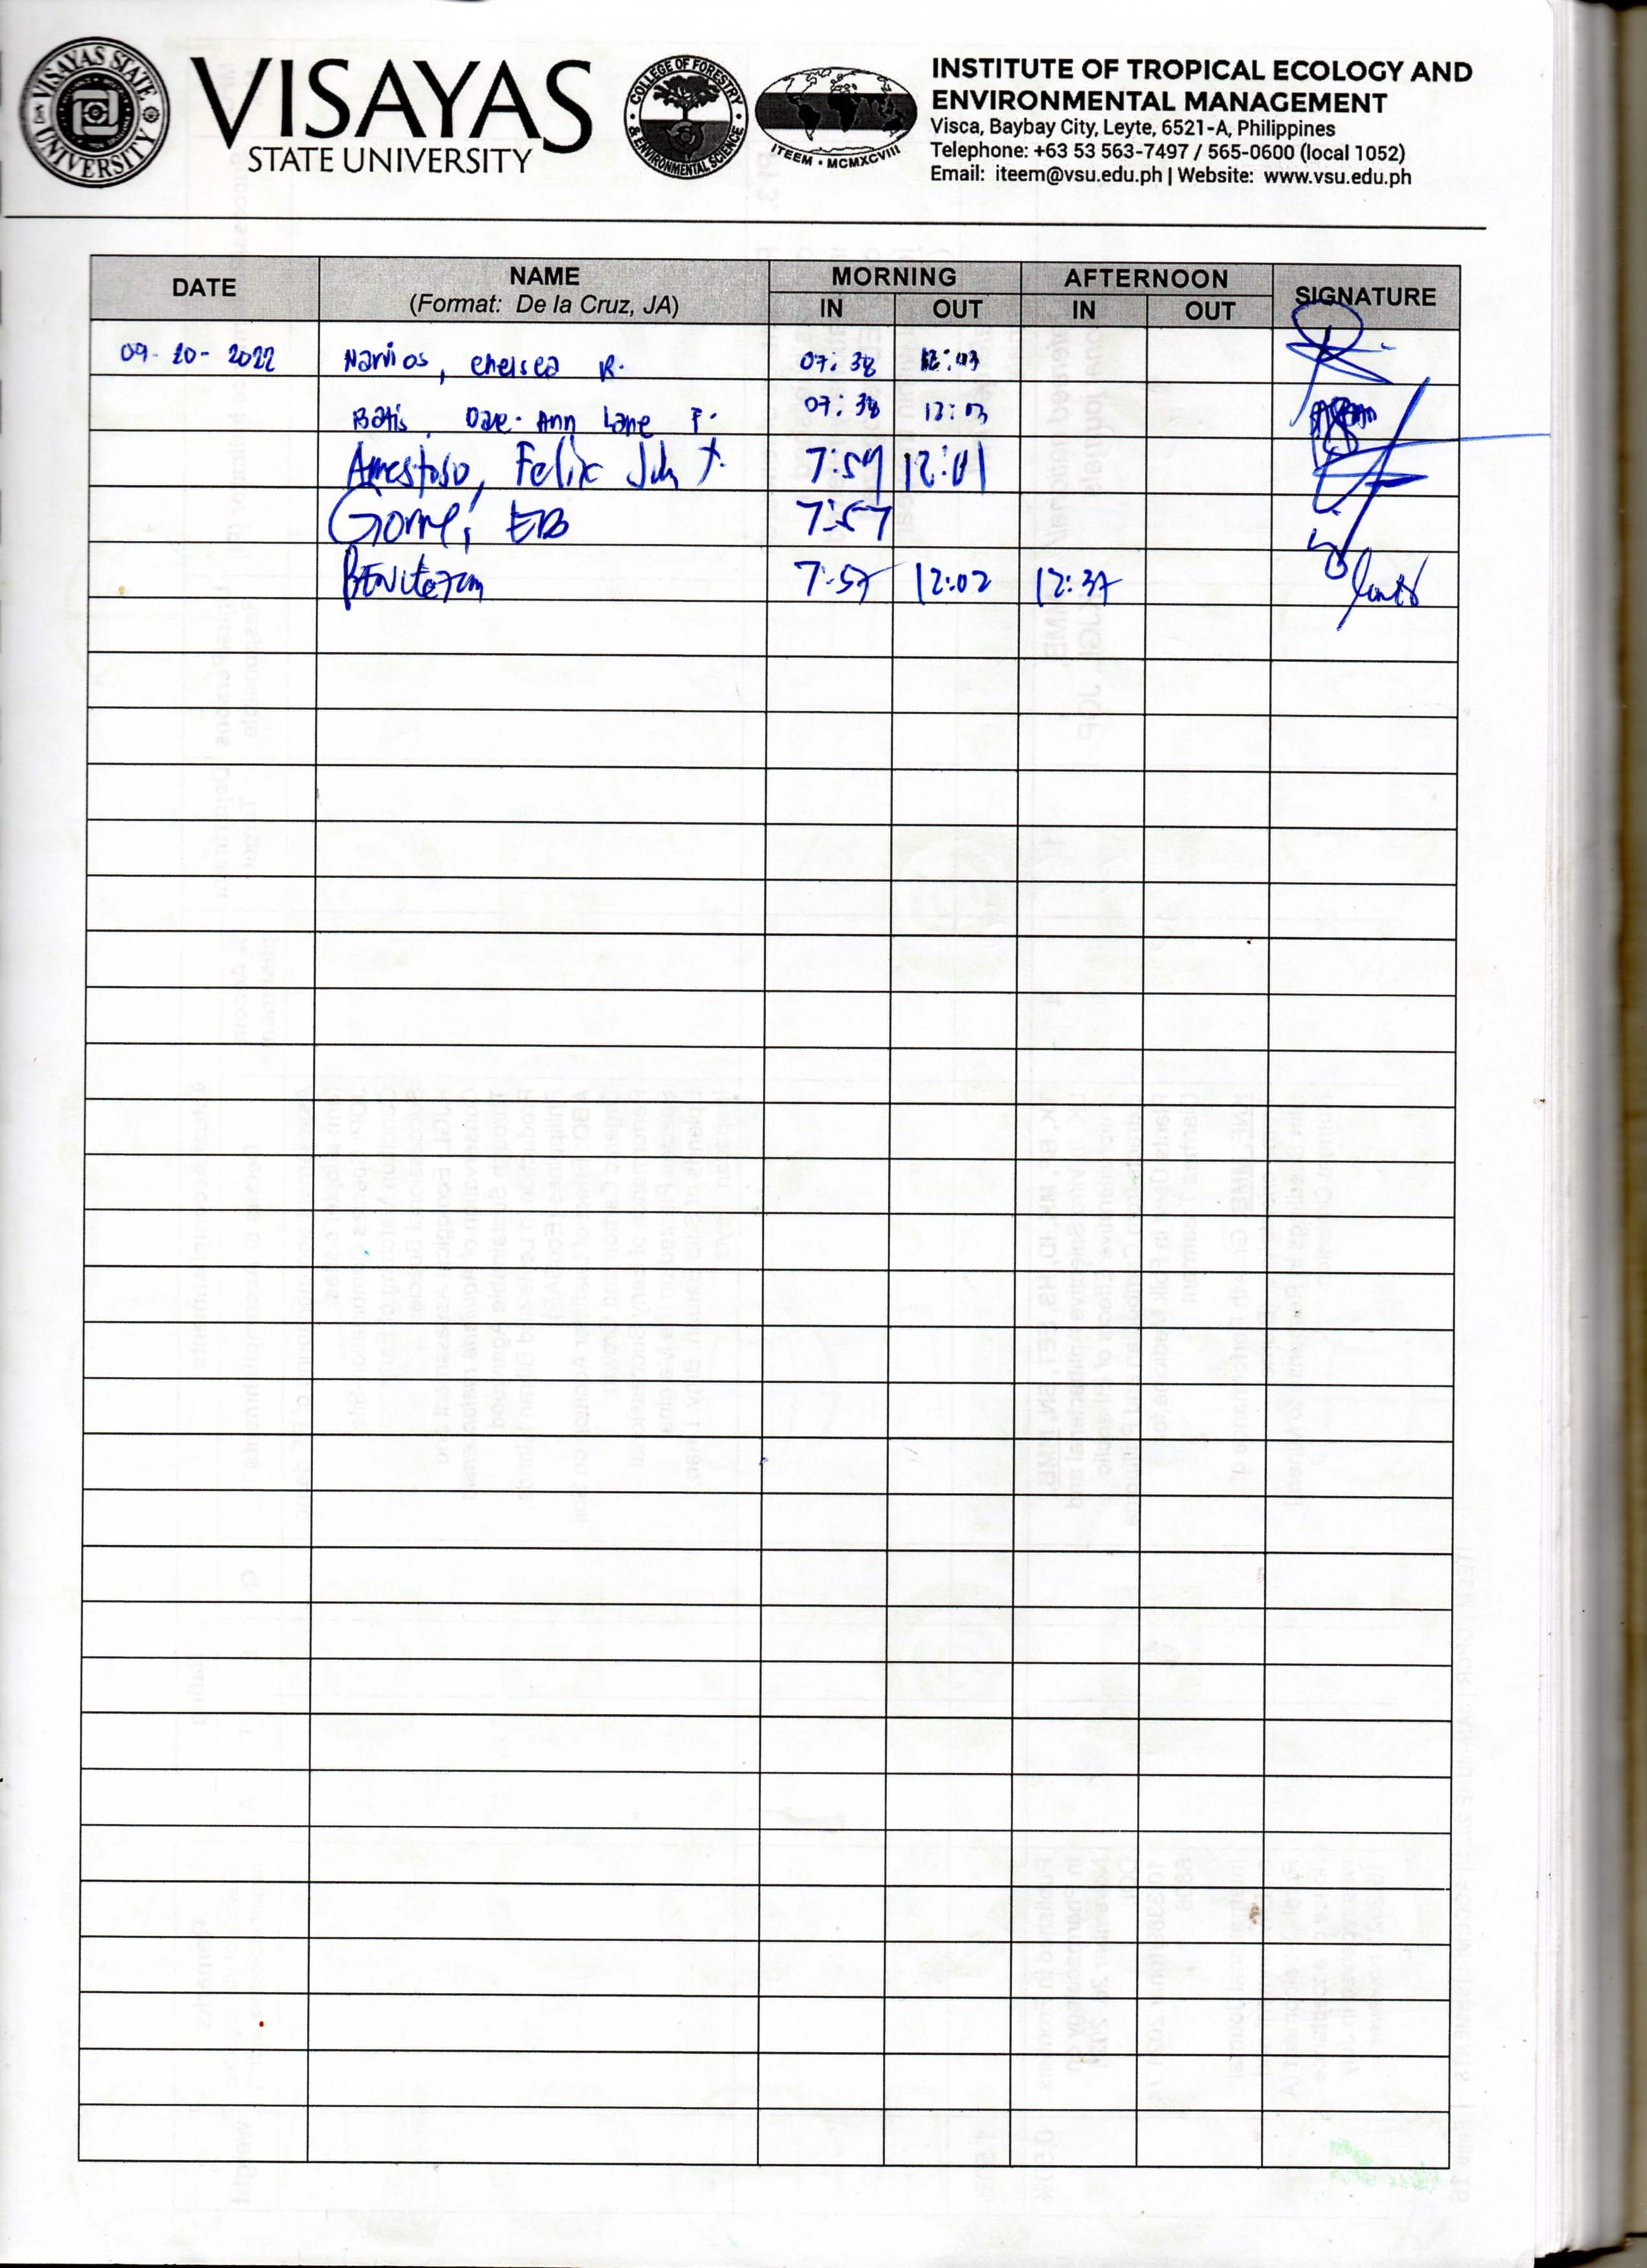 VISAYAS STATE UNIVERSITY
VISAYAS
STATE UNIVERSITY
COLLEGE OF FORESTRY
& ENVIRONMENTAL SCIENCE
ITEEM • MCMXCVIII
INSTITUTE OF TROPICAL ECOLOGY AND
ENVIRONMENTAL MANAGEMENT
Visca, Baybay City, Leyte, 6521-A, Philippines
Telephone: +63 53 563-7497 / 565-0600 (local 1052)
Email: iteem@vsu.edu.ph | Website: www.vsu.edu.ph
DATE NAME MORNING AFTERNOON SIGNATURE
(Format: De la Cruz, JA) IN OUT IN OUT
09-20-2022 Narvios, Chelsea R. 07:38 12:03
Batis, Dare-Ann Lane F. 07:38 12:03
Amestoso, Felix John T. 7:59 12:01
EB 7:57
7:57 12:02 12:37